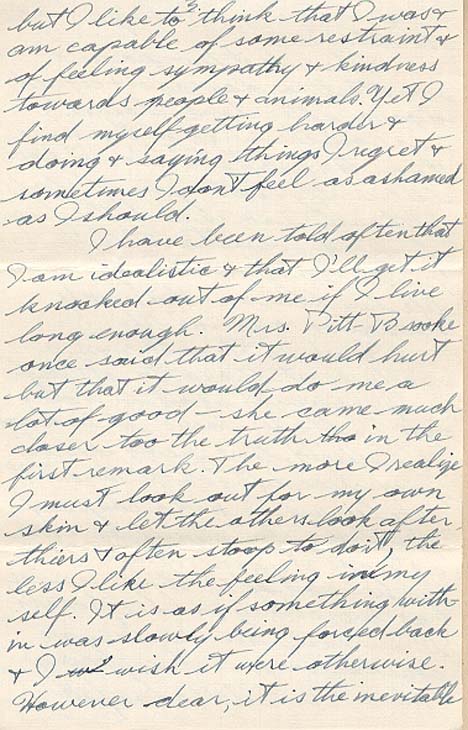 but I like to think that I was &
am capable of some restraint &
of feeling sympathy & kindness
towards people & animals. Yet I
find myself getting harder &
doing & saying things I regret &
sometimes I don't feel as ashamed
as I should.
I have been told often that
I am idealistic & that I'll get it
knocked out of me if I live
long enough. Mrs. Pitt-Brooke
once said that it would hurt
but that it would do me a
lot of good - she came much
closer too the truth in the
first remark. The more I realize
I must look out for my own
skin & let the others look after
thiers & often stoop to do it, the
less I like the feeling in my
self. It is as if something with-
in was slowly being forced back
& I wish it were otherwise.
However dear, it is the inevitable